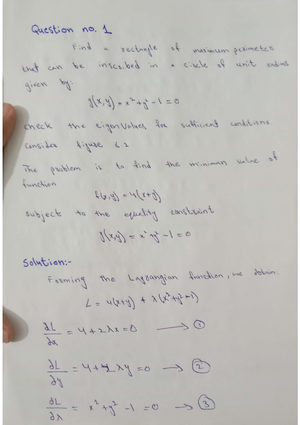 Question no. 1
Find a rectangle of maximum perimeter
that can be inscribed in a circle of unit radius
given by:
g(x,y) = x² + y² - 1 = 0
check the eigenvalues for sufficient conditions
Consider figure 6.2
The problem is to find the minimum value of
function
f(x,y) = 4(x+y)
subject to the equality constraint
g(x,y) = x² + y² - 1 = 0
Solution:-
Forming the Lagrangian function, we obtain
L = 4(x+y) + λ(x²+y²-1)
∂L/∂x = 4 + 2λx = 0 → ①
∂L/∂y = 4 + 2λy = 0 → ②
∂L/∂λ = x² + y² - 1 = 0 → ③